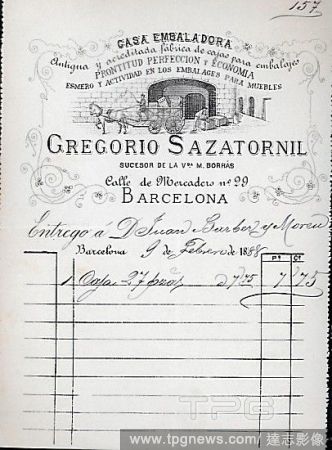 157
CASA EMBALADORA
Antigua y acreditada fábrica de cajas para embalajes
PRONTITUD PERFECCION Y ECONOMIA
ESMERO Y ACTIVIDAD EN LOS EMBALAGES PARA MUEBLES
GREGORIO SAZATORNIL
SUCESOR DE LA VDA M. BORRÁS
Calle de Mercaders nº 29
BARCELONA
Entrego a D Juan y
Barcelona 9 de Febrero de 1888
Ps Cs
1 Caja 27 d 7,75 7 75
TPG
www.tpgnews.com/達志影像